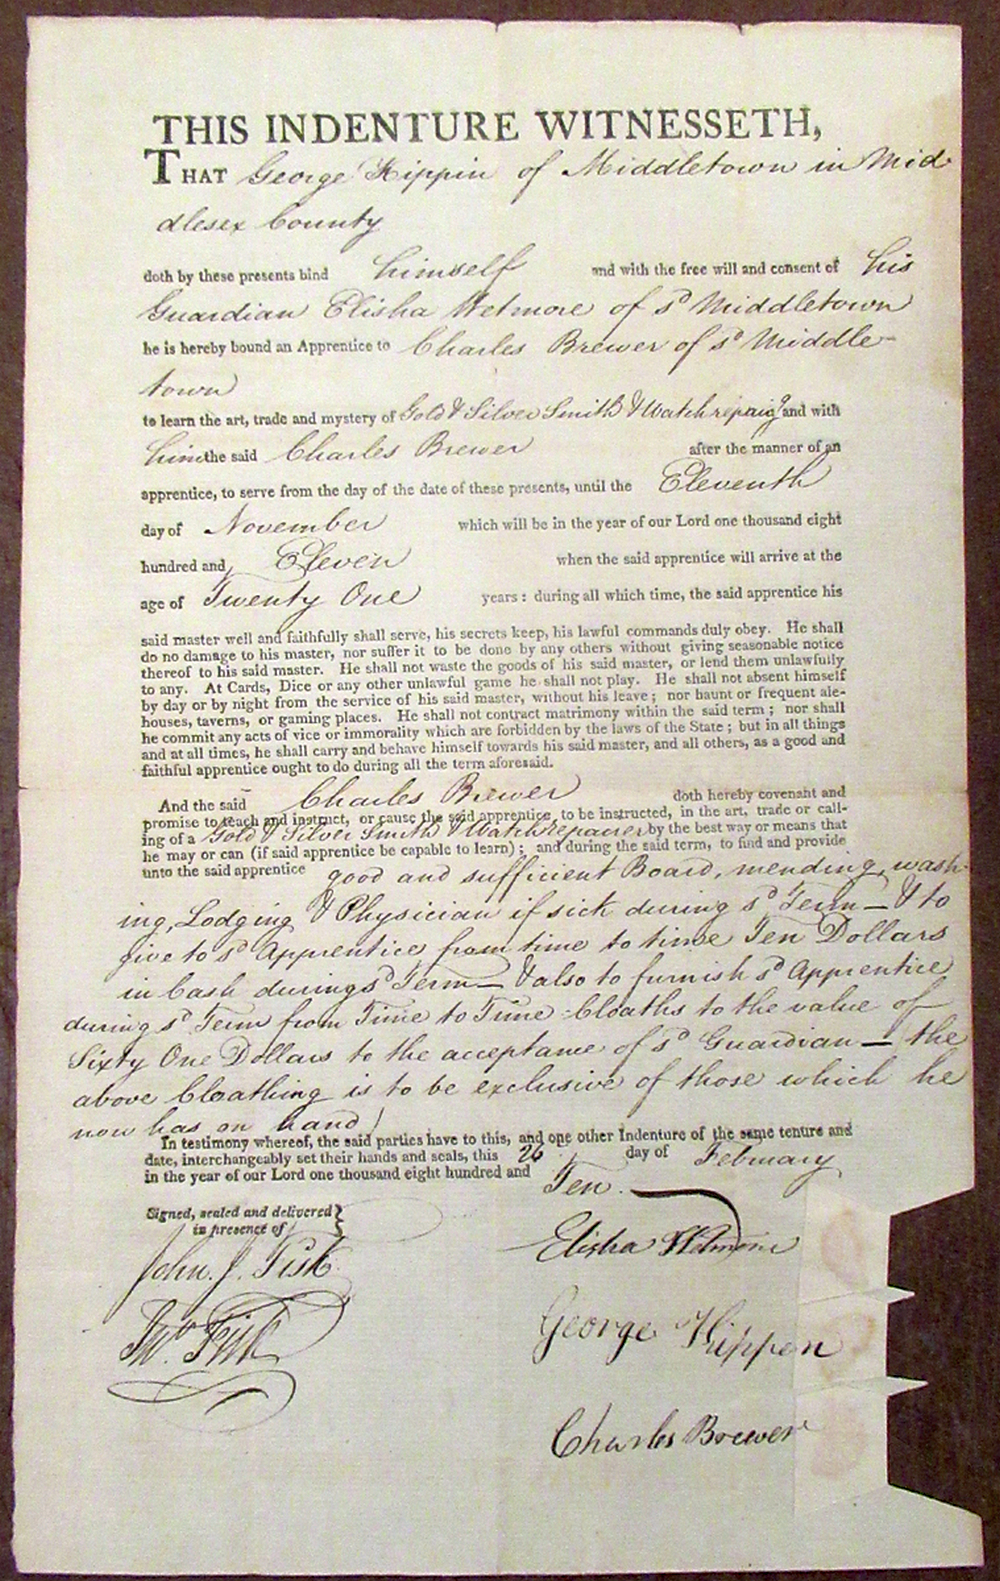 THIS INDENTURE WITNESSETH,
THAT George Kippin of Middletown in Mid
dlesex County
doth by these presents bind himself and with the free will and consent of his
Guardian Elisha Wetmore of sd Middletown
he is hereby bound an Apprentice to Charles Brewer of sd Middle-
town
to learn the art, trade and mystery of Gold & Silver Smith & Watch repaig and with
him the said Charles Brewer after the manner of an
apprentice, to serve from the day of the date of these presents, until the Eleventh
day of November which will be in the year of our Lord one thousand eight
hundred and Eleven when the said apprentice will arrive at the
age of Twenty One years: during all which time, the said apprentice his
said master well and faithfully shall serve, his secrets keep, his lawful commands duly obey. He shall
do no damage to his master, nor suffer it to be done by any others without giving seasonable notice
thereof to his said master. He shall not waste the goods of his said master, or lend them unlawfully
to any. At Cards, Dice or any other unlawful game he shall not play. He shall not absent himself
by day or by night from the service of his said master, without his leave; nor haunt or frequent ale-
houses, taverns, or gaming places. He shall not contract matrimony within the said term; nor shall
he commit any acts of vice or immorality which are forbidden by the laws of the State; but in all things
and at all times, he shall carry and behave himself towards his said master, and all others, as a good and
faithful apprentice ought to do during all the term aforesaid.
And the said Charles Brewer doth hereby covenant and
promise to teach and instruct, or cause the said apprentice, to be instructed, in the art, trade or call-
ing of a Gold & Silver Smith & Watch repairer by the best way or means that
he may or can (if said apprentice be capable to learn); and during the said term, to find and provide
unto the said apprentice good and sufficient Board, mending, wash-
ing, Lodging & Physician if sick during sd Term — & to
give to sd Apprentice from time to time Ten Dollars
in Cash during sd Term — & also to furnish sd Apprentice
during sd Term from Time to Time Cloaths to the value of
Sixty One Dollars to the acceptance of sd Guardian — the
above Cloathing is to be exclusive of those which he
now has on hand
In testimony whereof, the said parties have to this, and one other Indenture of the same tenure and
date, interchangeably set their hands and seals, this 26 day of February
in the year of our Lord one thousand eight hundred and Ten.
Signed, sealed and delivered
in presence of
John. J. Fisk
Elisha Wetmore
George Kippen
Jno. Fisk
Charles Brewer